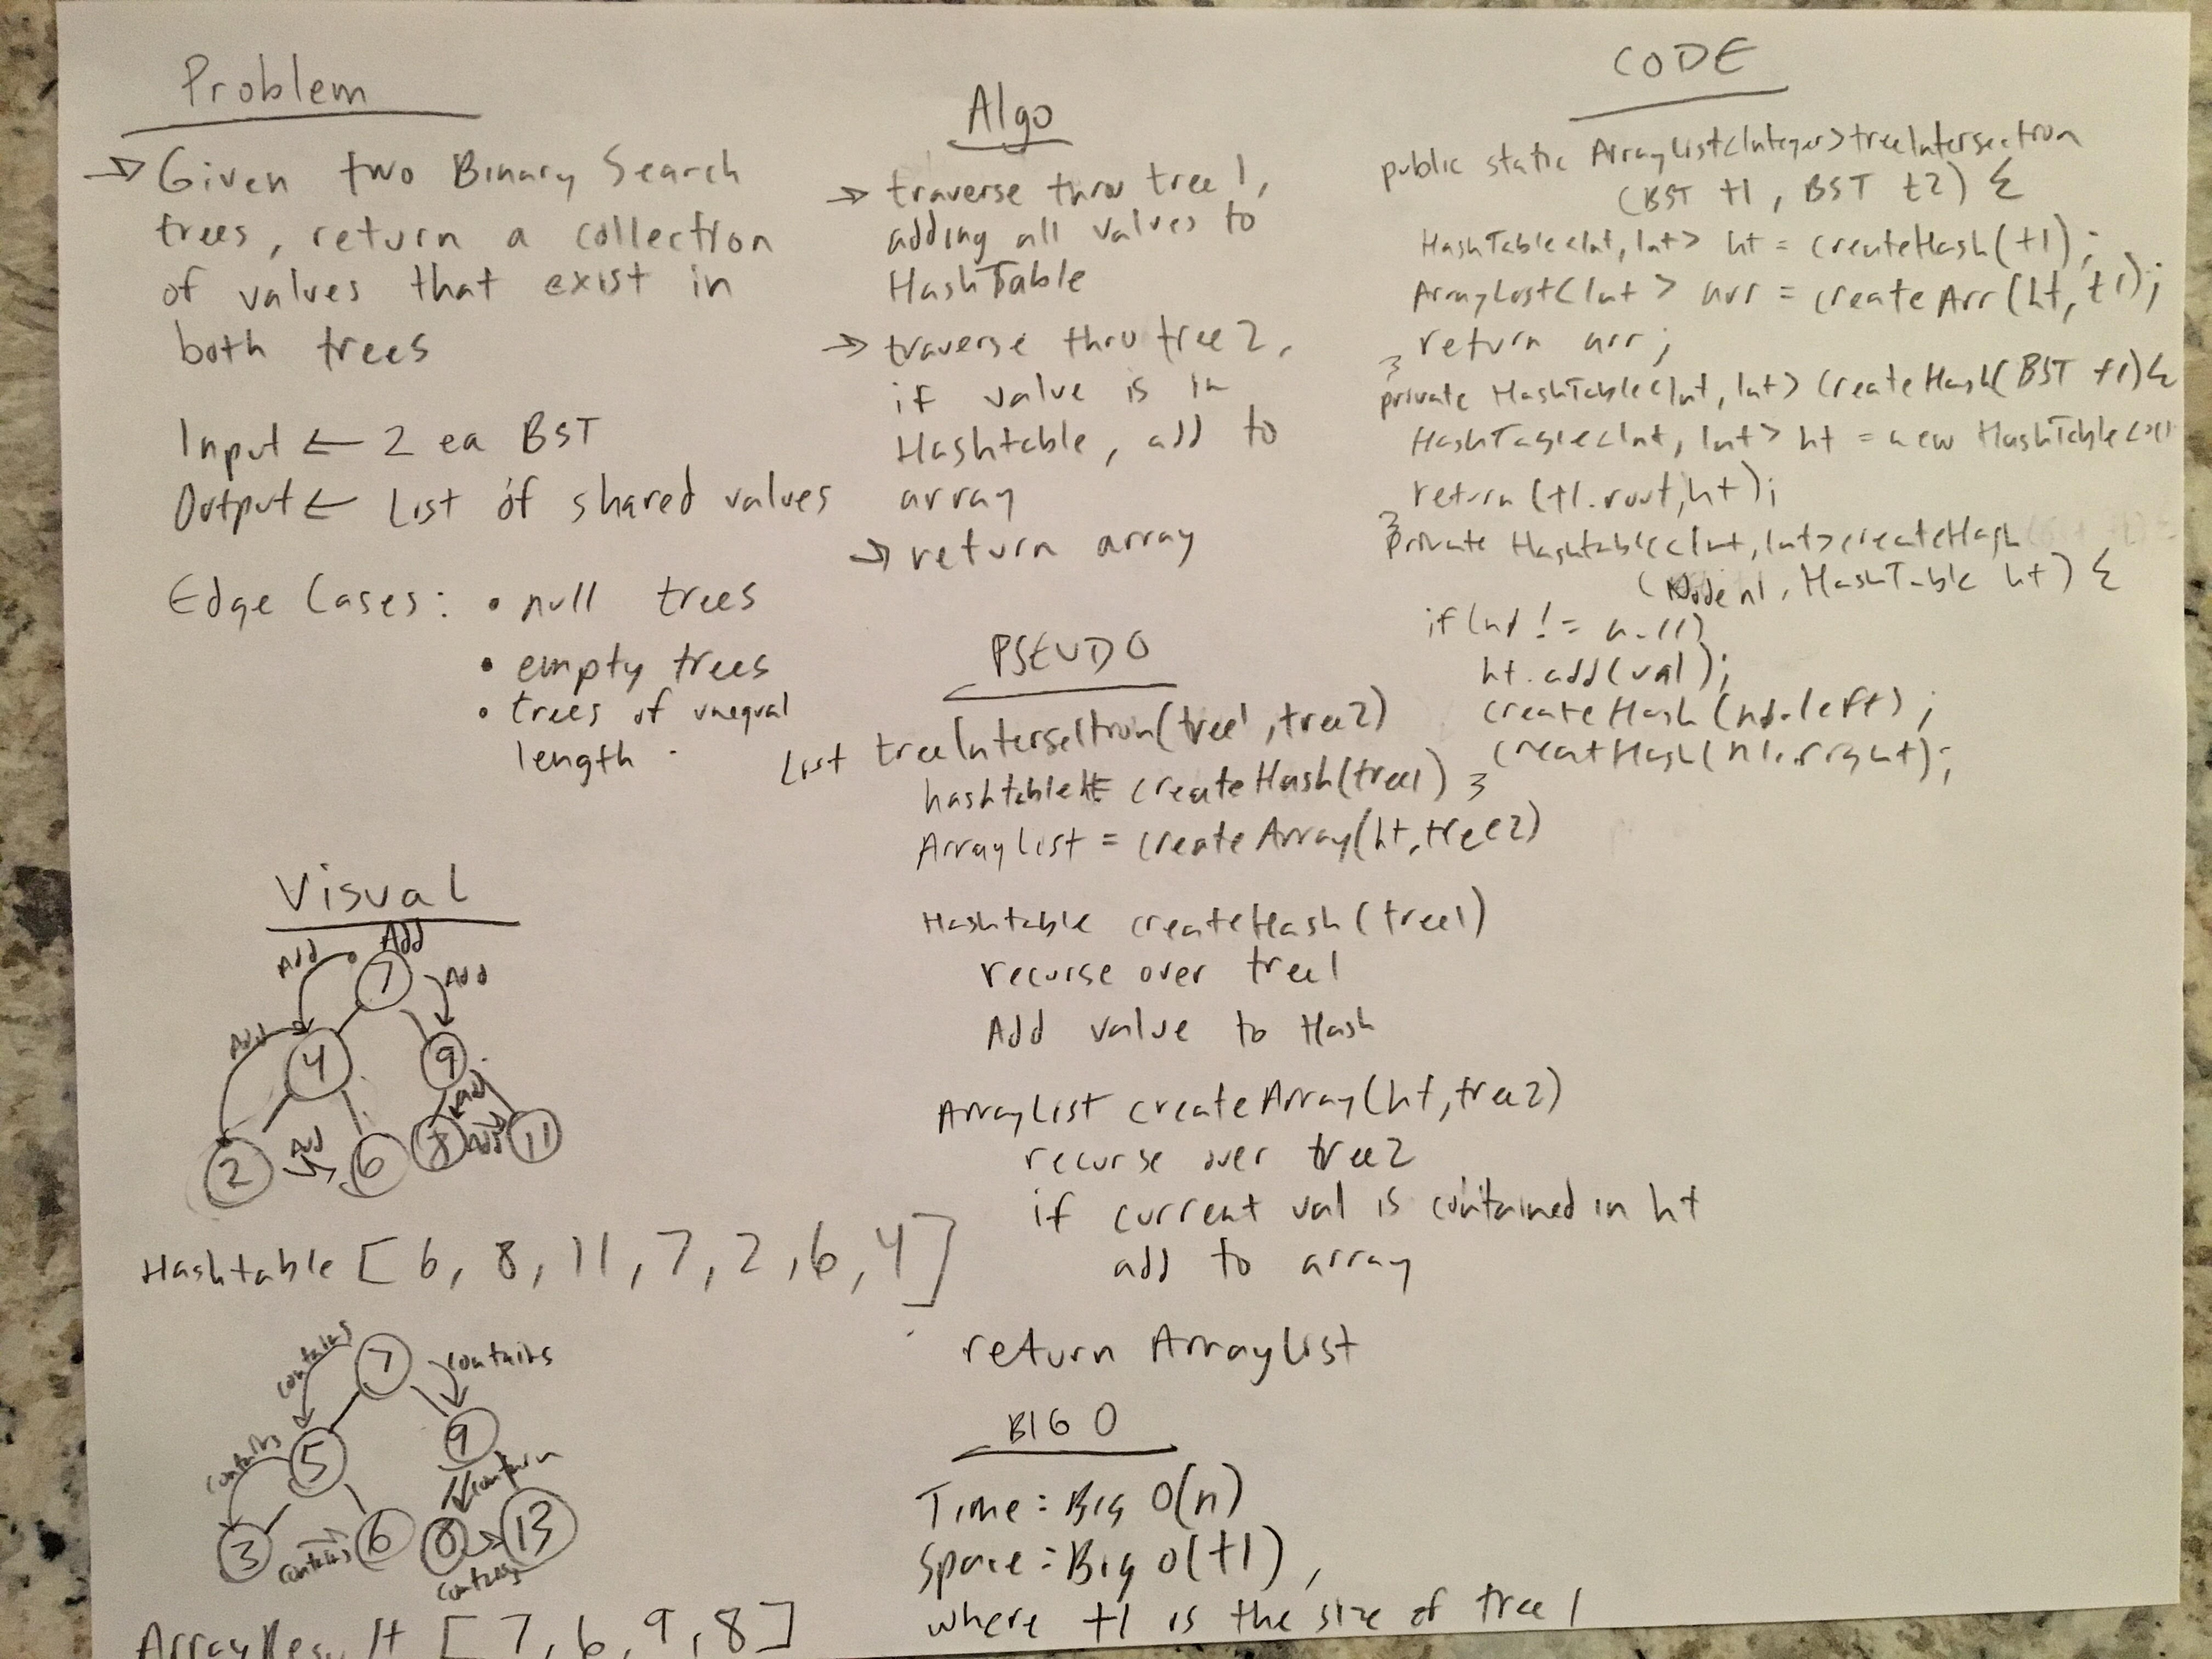 Problem
→ Given two Binary Search
trees, return a collection
of values that exist in
both trees
Input ← 2 ea BST
Output ← List of shared values
Edge Cases: • null trees
• empty trees
• trees of unequal
length
Visual
Add
Add
7
Add
Add
4
9
Add
2
Add
6
8
Add
11
Hashtable [6, 8, 11, 7, 2, 6, 4]
7
contains
contains
5
9
contains
contain
3
contains
6
8
contains
13
Array Result [7, 6, 9, 8]
Algo
→ traverse thru tree 1,
adding all values to
HashTable
→ traverse thru tree 2,
if value is in
Hashtable, add to
array
→ return array
PSEUDO
List treeIntersection(tree1, tree2)
hashtable ht = createHash(tree1)
ArrayList = createArray(ht, tree2)
Hashtable createHash(tree1)
recurse over tree1
Add value to Hash
ArrayList createArray(ht, tree2)
recurse over tree2
if current val is contained in ht
add to array
return ArrayList
BIG O
Time: Big O(n)
Space: Big O(t1),
where t1 is the size of tree 1
CODE
public static ArrayList<Integer> treeIntersection
(BST t1, BST t2) {
HashTable<Int, Int> ht = createHash(t1);
ArrayList<Int> arr = createArr(ht, t1);
return arr;
}
private HashTable<Int, Int> createHash(BST t1){
HashTable<Int, Int> ht = new HashTable
return (t1.root, ht);
}
private Hashtable<Int, Int> createHash
(Node n1, HashTable ht) {
if (n1 != null)
ht.add(val);
createHash(n1.left);
creatHash(n1.right);
}